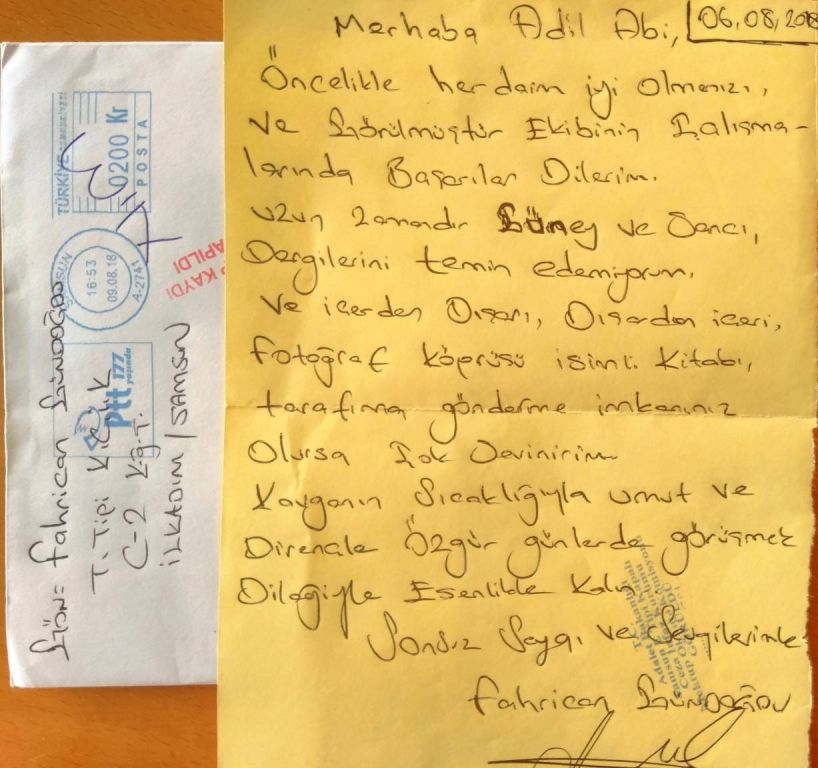 Merhaba Adil Abi,
06.08.2018
Öncelikle herdaim iyi olmanızı,
ve Görülmüştür Ekibinin Çalışma-
larında Başarılar Dilerim.
uzun zamandır Güney ve Sancı,
Dergilerini temin edemiyorum.
ve içerden Dışarı, Dışardan içeri,
Fotoğraf köprüsü isimli Kitabı,
tarafıma gönderme imkanınız
Olursa Çok Sevinirim
Kavganın Sıcaklığıyla umut ve
Direncle Özgür günlerde görüşmek
Dileğiyle Esenlikle Kalın
Sonsuz Saygı ve Sevgilerimle
Fahrican GÜNDOĞDU
GÖN= Fahrican GÜNDOĞDU
T. Tipi
C-2 Kğt.
İLKADIM / SAMSUN
TÜRKİYE CUMHURİYETİ
0200 Kr
POSTA
SAMSUN
16:53
09.08.18
A-2741
KAYDI
APILDI
Ptt 177
yaşında
T.C.
Adalet Bakanlığı